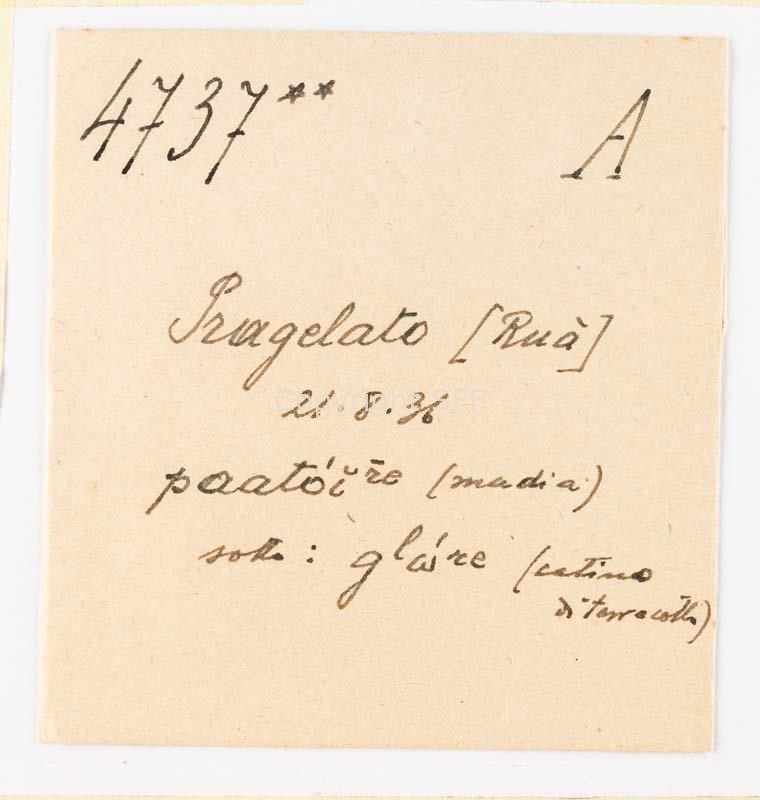 4737** A
Pragelato [Ruà]
21.8.36
(madia)
sotto: (catino
di terracotta)